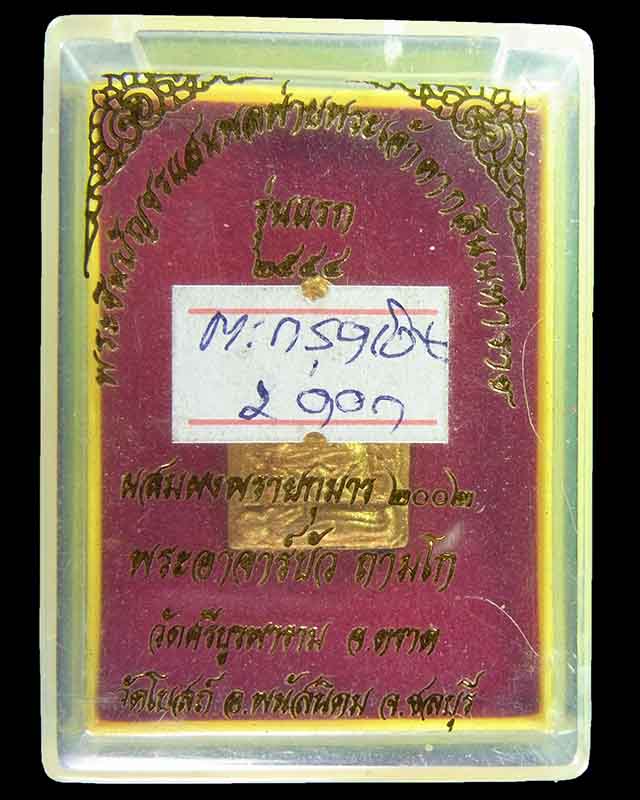 พระชินบัญจรแสนพลพ่ายพระเจ้าตากสินมหาราช
รุ่นแรก
๒๕๕๔
ตะกรุดเงิน
2 ดอก
ผสมผงพรายกุมาร ๒๐๐๒
พระอาจารย์บัว ถามโก
วัดศรีบูรพาราม จ.ตราด
วัดโบสถ์ อ.พนัสนิคม จ.ชลบุรี